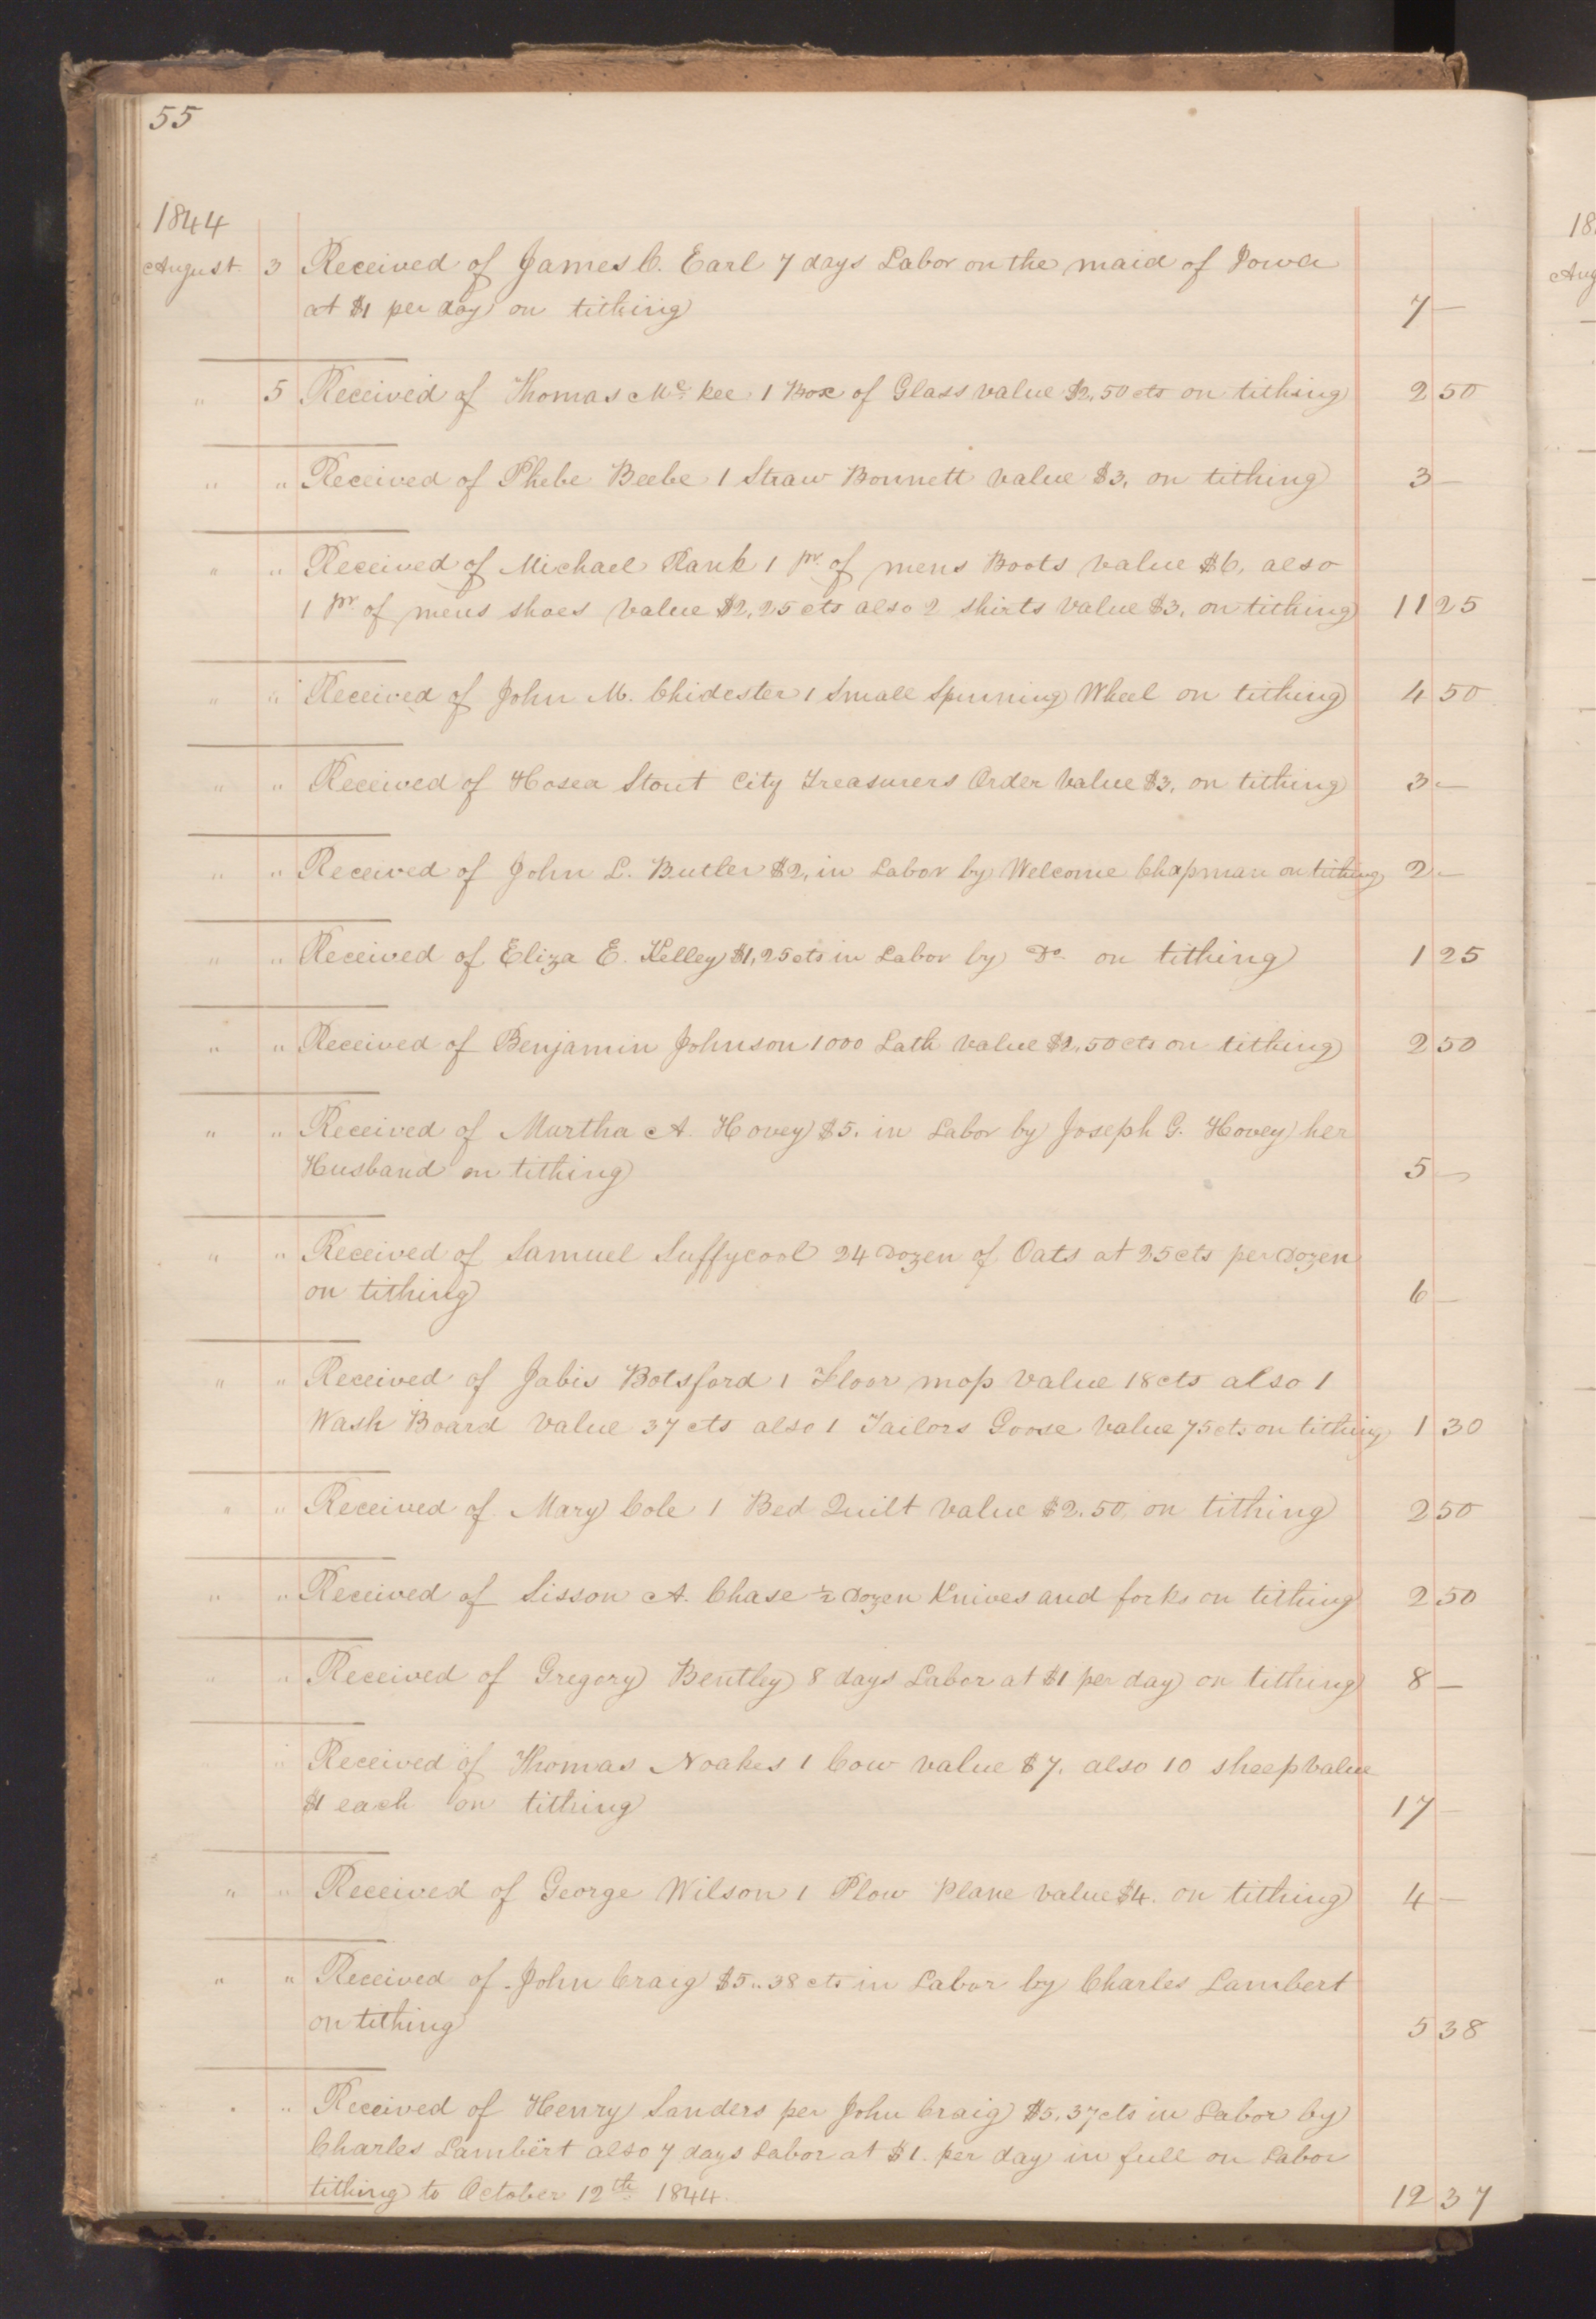 55
1844
August. 3 Received of James C. Earl 7 days Labor on the maid of Iowa
at $1 per day on tithing 7 —
" 5 Received of Thomas Mc. kee 1 Box of Glass value $2,50 cts on tithing 2 50
" " Received of Phebe Beebe 1 Straw Bonnett value $3, on tithing 3 —
" " Received of Michael Rank 1 pr. of mens Boots value $6, also
1 pr. of mens shoes value $2,25 cts also 2 shirts value $3, on tithing 11 25
" " Received of John M. Chidester 1 Small Spinning Wheel on tithing 4 50
" " Received of Hosea Stout City Treasurers Order value $3, on tithing 3 —
" " Received of John L. Butler $2, in Labor by Welcome Chapman on tithing 2 —
" " Received of Eliza E. Kelley $1,25 cts in Labor by Do. on tithing 1 25
" " Received of Benjamin Johnson 1000 Lath value $2,50 cts on tithing 2 50
" " Received of Murtha A. Hovey $5. in Labor by Joseph G. Hovey her
Husband on tithing 5 —
" " Received of Samuel Suffycool 24 Dozen of Oats at 25 cts per Dozen
on tithing 6 —
" " Received of Jabis Botsford 1 Floor mop value 18 cts also 1
Wash Board value 37 cts also 1 Tailors Goose value 75 cts on tithing 1 30
" " Received of Mary Cole 1 Bed Quilt value $2.50, on tithing 2 50
" " Received of Sisson A. Chase ½ Dozen Knives and forks on tithing 2 50
" " Received of Gregory Bentley 8 days Labor at $1 per day on tithing 8 —
" " Received of Thomas Noakes 1 Cow value $7. also 10 sheep value
$1 each on tithing 17 —
" " Received of George Wilson 1 Plow Plane value $4. on tithing 4 —
" " Received of John Craig $5..38 cts in Labor by Charles Lambert
on tithing 5 38
" " Received of Henry Sanders per John Craig $5.37 cts in Labor by
Charles Lambert also 7 days Labor at $1. per day in full on Labor
tithing to October 12th. 1844. 12 37
18
Aug